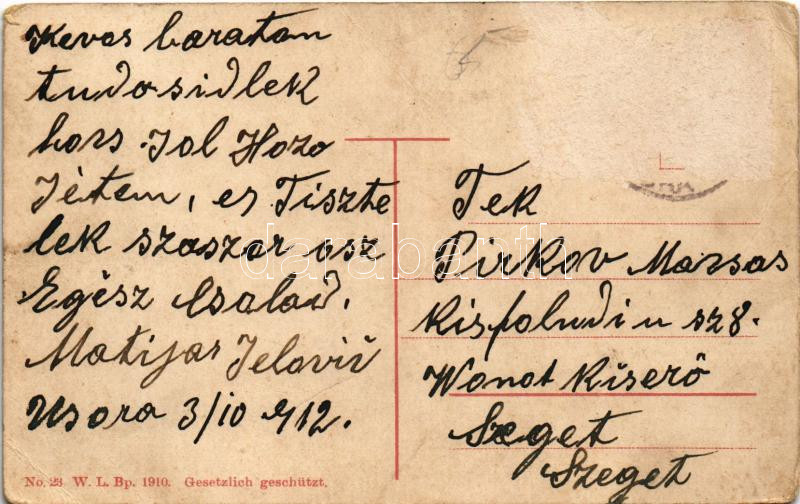 Kevos baratom
tudosidlek
hors Jol Hozo
Jétem, es Tiszte
lek szaszor osz
Egész Csalad.
Matijas Jelovič
Usora 3/10 912.
Tek
Pirkov Marsas
Kisfaludi u sz 8.
Wonat Kiserő
Szeget
Szeget
No. 23 W. L. Bp. 1910. Gesetzlich geschützt.
darabanth